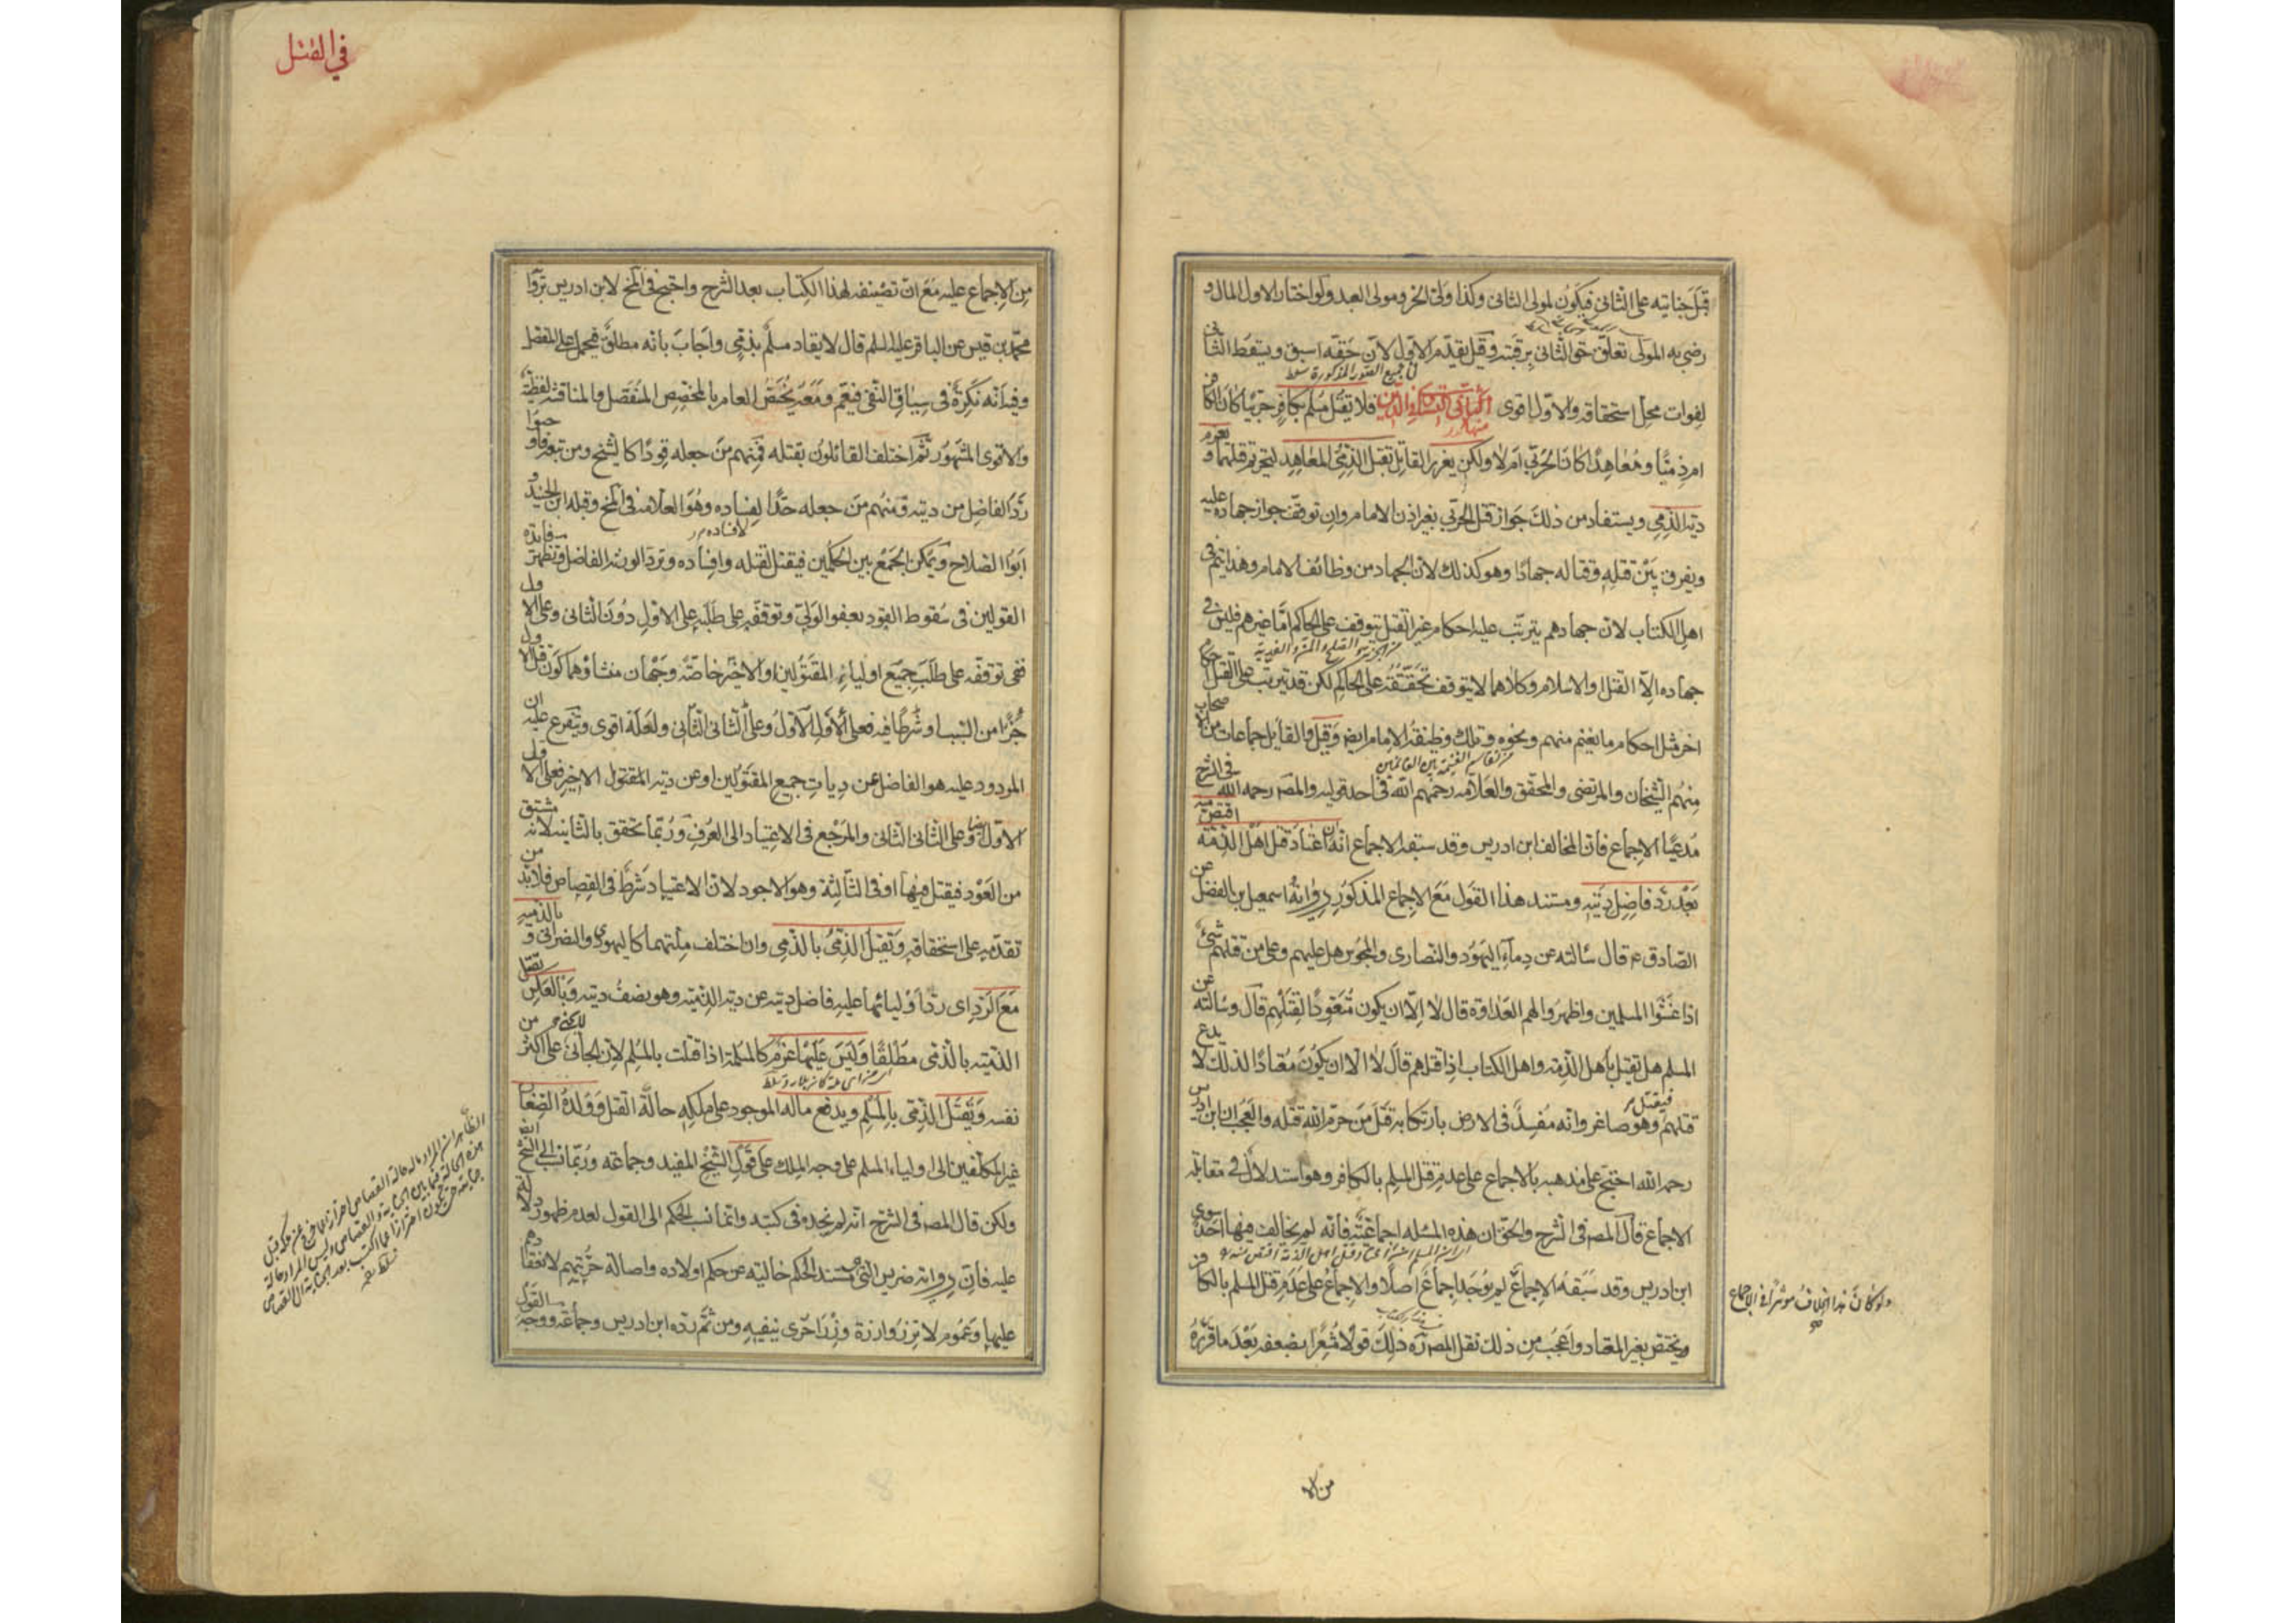 قبل جنايته على الثاني فيكون لمولى الثاني وكذا ولي الحر ومولى العبد ولو اختار الاول المال و
رضي به المولى تعلق حق الثاني برقبته وقيل يقدم الاول لان حقه اسبق ويسقط الثاني
في جميع الصور المذكورة سلط
لفوات محل استحقاقه والاول اقوى الثاني التساوي في الدين فلا يقتل مسلم بكافر حربيا كان الكافر
ام ذميا ومعاهدا كان الحربي ام لا ولكن يعزر القاتل بقتل الذمي المعاهد لتحريم قتلهما ويغرم
دية الذمي ويستفاد من ذلك جواز قتل الحربي بغير اذن الامام وان توقف جواز جهاده عليه
ويفرق بين قتله وقتاله جهادا وهو كذلك لان الجهاد من وظائف الامام وهذا يتم في
اهل الكتاب لان جهادهم يترتب عليه احكام غير القتل تتوقف على الحاكم اما غيرهم فليس في
من الجزية والصلح والمن والفدية
جهاده الا القتل او الاسلام وكلاهما لا يتوقف تحققه على الحاكم لكن قد يترتب على القتل احكام
اخر مثل احكام ما يغنم منهم ونحوه وتلك وظيفة الامام ايض وقيل والقايل جماعات من الاصحاب
منهم الشيخان والمرتضى والمحقق والعلامة رحمهم الله في احد قوليه والمص رحمه الله في الشرح
مدعيا الاجماع فان المخالف ابن ادريس وقد سبقه الاجماع انه ان اعتاد قتل اهل الذمة اقتص منه
بعد رد فاضل ديته ومستند هذا القول مع الاجماع المذكور رواية اسمعيل بن الفضل عن
الصادق ع قال سالته عن دماء اليهود والنصارى والمجوس هل عليهم وعلى من قتلهم شيء
اذا غشوا المسلمين واظهروا لهم العداوة قال لا الا ان يكون متعودا لقتلهم قال وسالته عن
المسلم هل يقتل باهل الذمة واهل الكتاب اذا قتلهم قال لا الا ان يكون معتادا لذلك لا يدع
قتلهم فيقتل وهو صاغر وانه مفسد في الارض بارتكابه قتل من حرم الله قتله والعجب ان ابن ادريس
رحمه الله احتج على مذهبه بالاجماع على عدم قتل المسلم بالكافر وهو استدلال في مقابلة
الاجماع قال المص في الشرح والحق ان هذه المسئلة اجماعية فانه لم يخالف فيها احد سوى
ابن ادريس وقد سبقه الاجماع لم يوجد اجماع اصلا والاجماع على عدم قتل المسلم بالكافر
ولو كان هذا الخلاف موثرا في الاجماع
ويختص بغير المعتاد واعجب من ذلك نقل المص ره ذلك قولا مشعرا بضعفه بعد ما قرره
من الا
في القتل
من الاجماع عليه مع ان تصنيفه لهذا الكتاب بعد الشرح واحتج في المخ لابن ادريس برواية
محمد بن قيس عن الباقر عليه السلم قال لا يقاد مسلم بذمي واجاب بانه مطلق فيحمل على المفصل
وفيه انه نكرة في سياق النفي فيعم ومعه يخص العام بالمخصص المنفصل والمناقشة لفظية
والاقوى المشهور ثم اختلف القائلون بقتله فمنهم من جعله قودا كالشيخ ومن تبعه فاوجبوا
رد الفاضل من ديته ومنهم من جعله حدا لفساده وهو العلامة في المخ وقبله ابن الجنيد و
لافساده
ابو الصلاح ويمكن الجمع بين الحكمين فيقتل لقتله وافساده وترد الورثة الفاضل وتظهر فايدة
القولين في سقوط القود بعفو الولي وتوقفه على طلبه على الاول دون الثاني وعلى الاول
ففي توقفه على طلب جميع اولياء المقتولين او الاخير خاصة وجهان منشاؤهما كون قتل الاول
جزءا من السبب او شرطا فيه فعلى الاول الاول وعلى الثاني الثاني ولعله اقوى ويتفرع عليه ان
المردود عليه هو الفاضل عن ديات جميع المقتولين او عن دية المقتول الاخير فعلى الاول
الاول وعلى الثاني الثاني والمرجع في الاعتياد الى العرف وربما تحقق بالثانية لانه مشتق
من العود فيقتل فيها او في الثالثة وهو الاجود لان الاعتياد شرط في القصاص فلا بد من
تقدمه على استحقاقه ويقتل الذمي بالذمي وان اختلف ملتهما كاليهودي والنصراني و بالذمية
مع الرد اى رد اوليائها عليه فاضل ديته عن دية الذمية وهو نصف ديته وبالعكس تقتل
الذمية بالذمي مطلقا وليس عليها غرم كالمسلمة اذا قتلت بالمسلم لان الجاني لا يجني على اكثر من
نفسه ويقتل الذمي بالمسلم ويدفع ماله الموجود على ملكه حالة القتل وولده الصغار
غير المكلفين الى اولياء المسلم على وجه الملك على قول الشيخ المفيد وجماعة وربما نسب الى الشيخ ايض
ولكن قال المص في الشرح انه لم نجده في كتبه وانما نسب الحكم الى القول لعدم ظهور دليل
عليه فان رواية ضريس التي هي مستند الحكم خالية عن حكم اولاده واصالة حريتهم لانعقادهم
عليها وعموم لا تزر وازرة وزر اخرى ينفيه ومن ثم رده ابن ادريس وجماعة ووجه القول